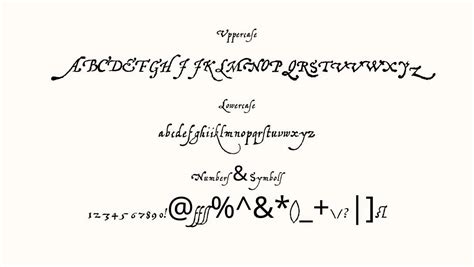 Uppercase
ABCDEFGH I JKLMNOP QRSTUVWXYZ
Lowercase
abcdefghiiklmnopqrstuvwxyz
Numbers & Symbols
1234567890!@ﬀſſ%^&*()_+\/?|]